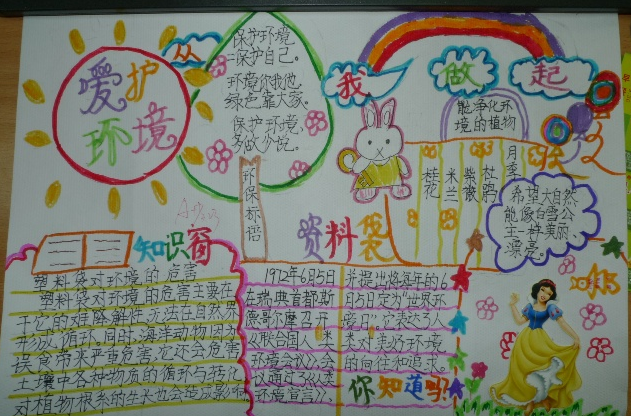 爱护
环境
从
我
做
起
保护环境
=保护自己。
环境你我他,
绿色靠大家。
保护环境、
多做少说。
环保标语
能净化环
境的植物
桂花
米兰
紫薇
杜鹃
月季
希望大自然
能像白雪公
主一样美丽、
漂亮。
知识窗
资料袋
塑料袋对环境的危害
塑料袋对环境的危害主要在
于它的难降解性,无法在自然界
形成循环。同时,海洋动物因为
误食带来严重危害,它还会危害
土壤中各种物质的循环与转化
对植物根系的生长也会造成影响
1972年6月5日
在瑞典首都斯
德哥尔摩召开
《联合国人类
环境会议》,会
议通过了《人类
环境宣言》、
并提出将每年的6
月5日定为"世界环
境日"。它表达了人
类对美好环境
的向往和追求。
你知道吗?